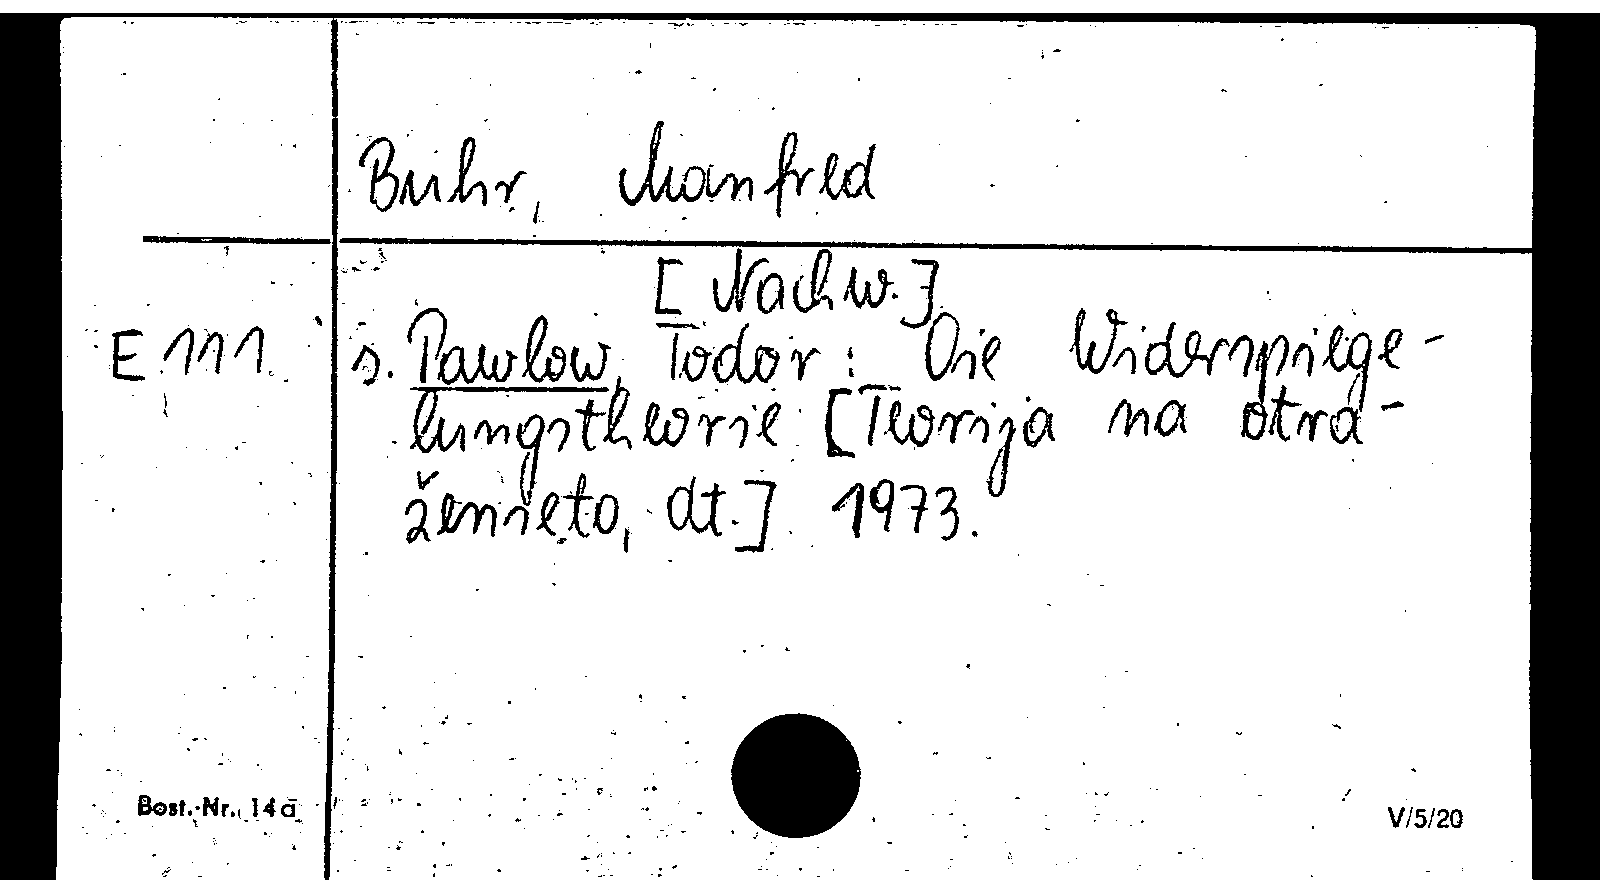 Buhr, Manfred
[Nachw.]
E 111 s. Pawlow, Todor: Die Widerspiege-
lungstheorie [Teorija na otra-
ženieto, dt.] 1973.
Best.-Nr. 14a V/5/20